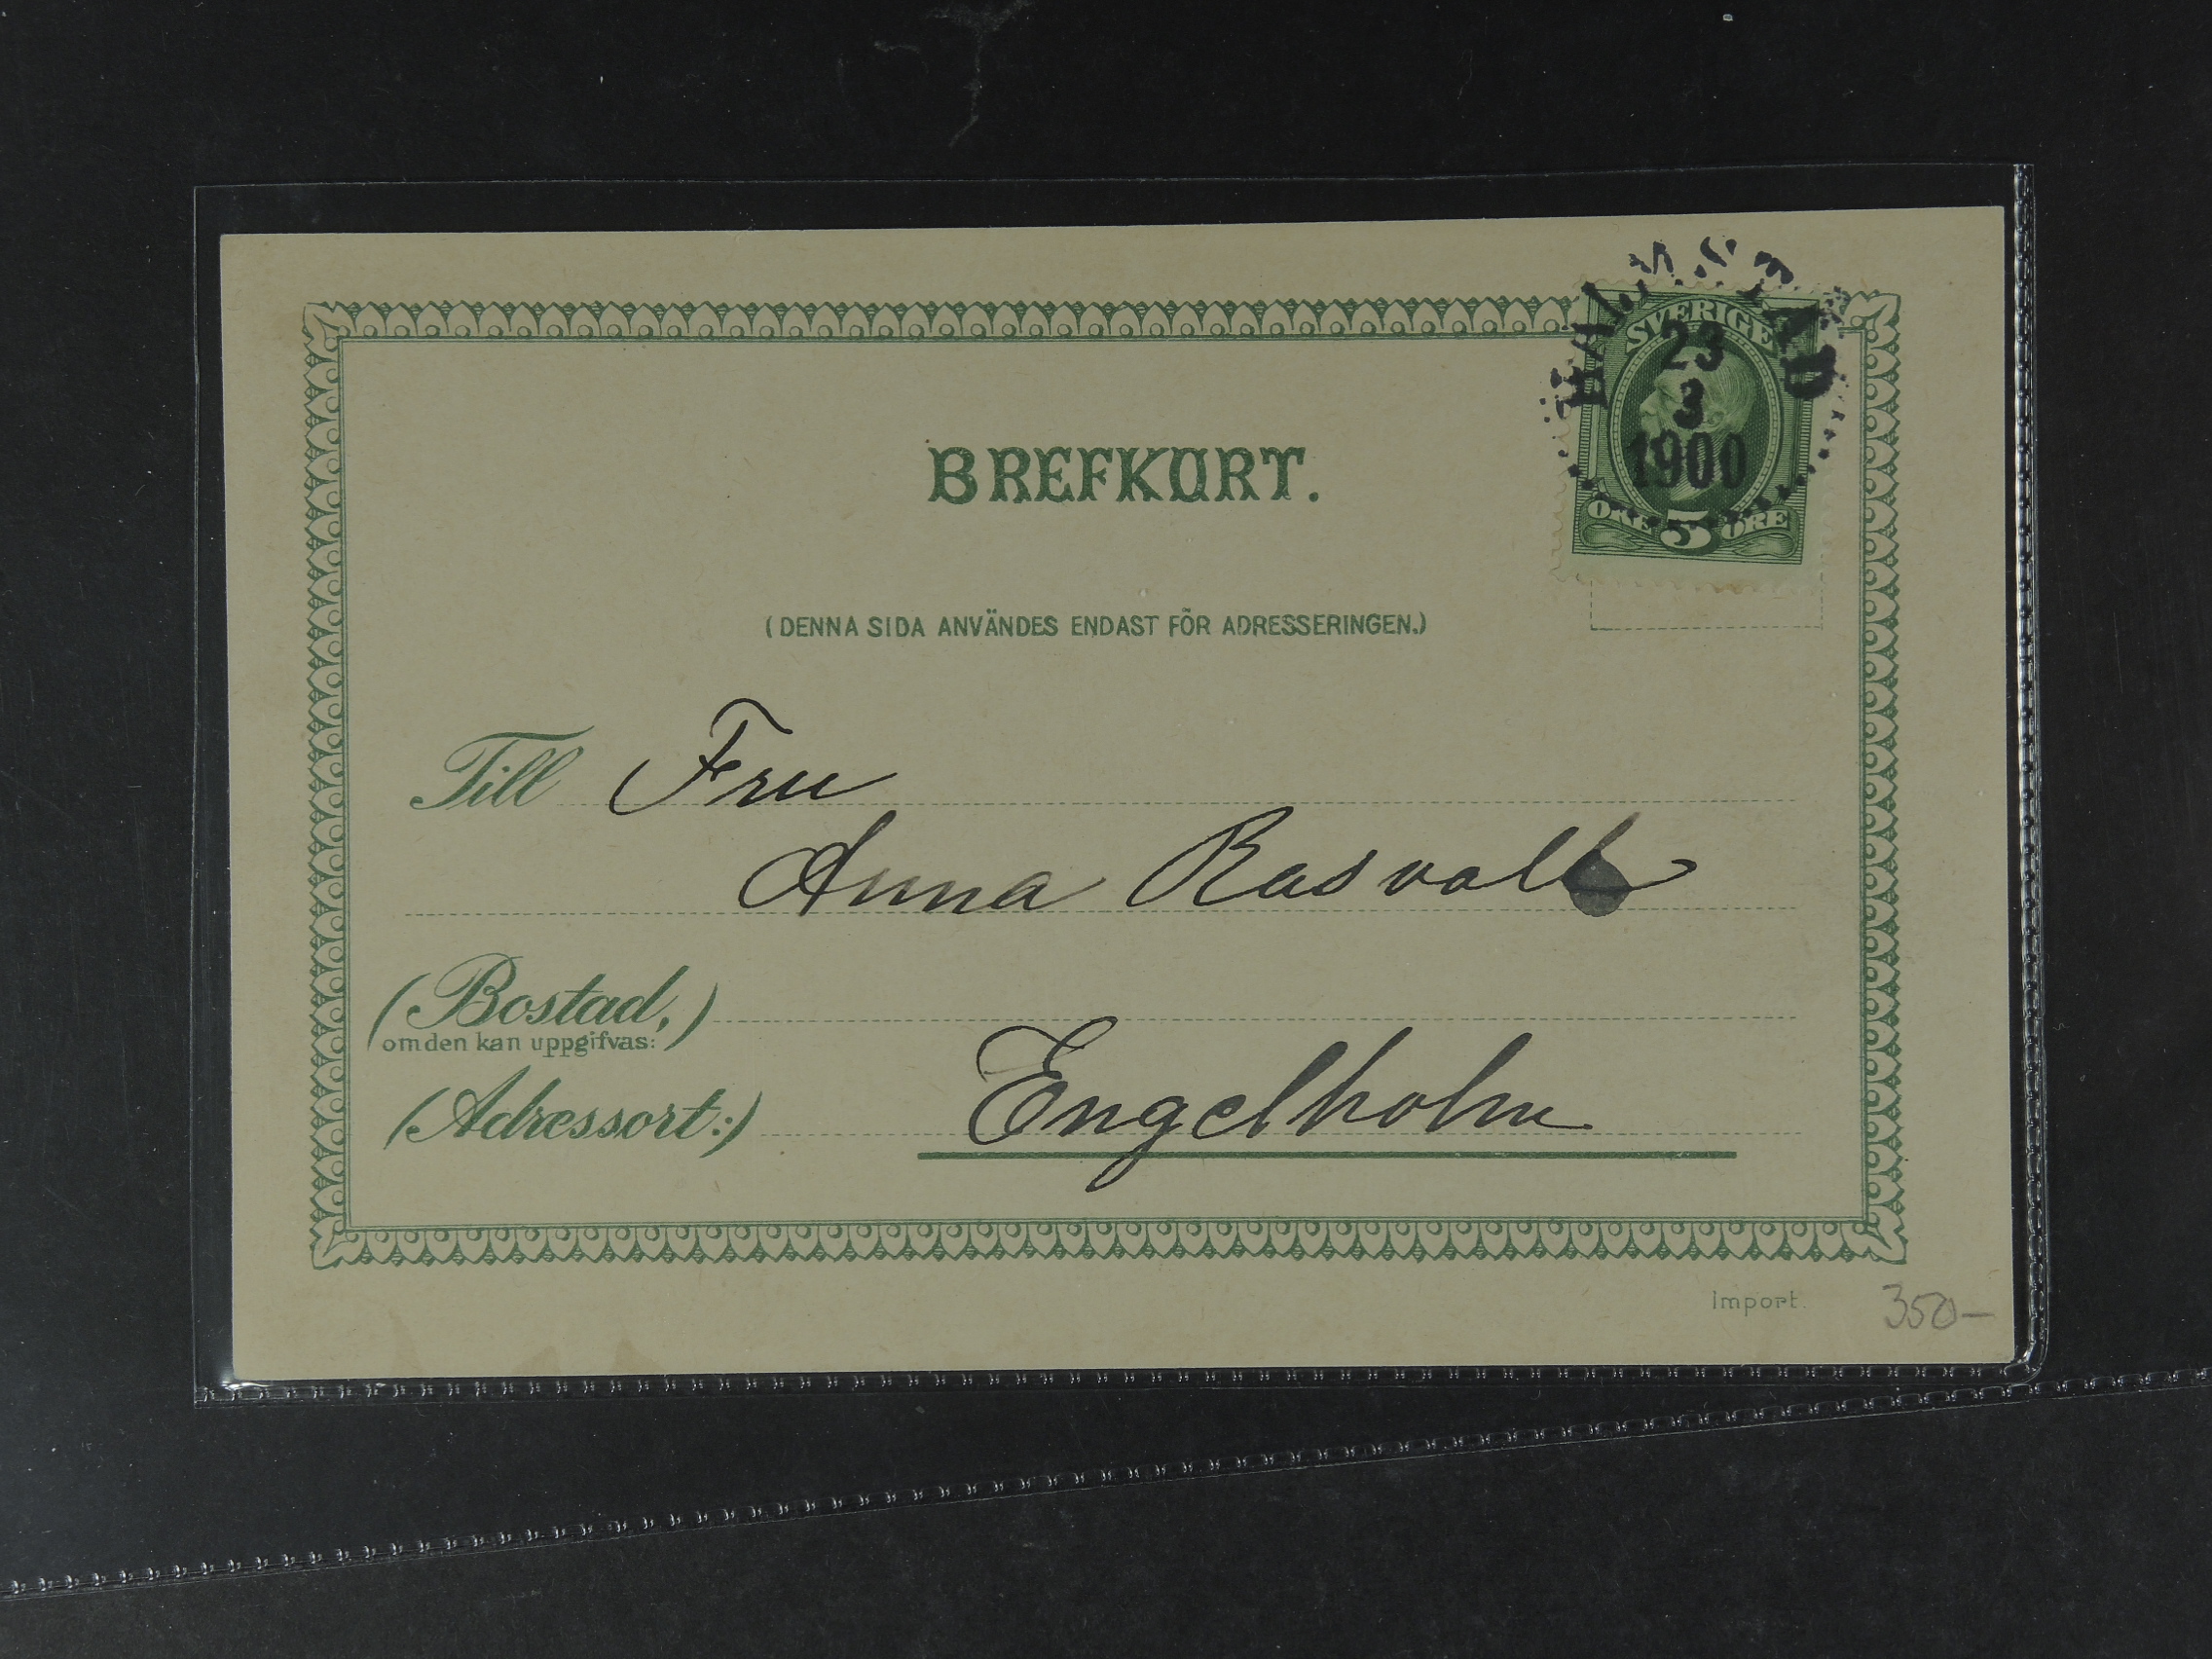 HALMSTAD
SVERIGE
23
3
1900
ÖRE 5 ÖRE
BREFKORT.
(DENNA SIDA ANVÄNDES ENDAST FÖR ADRESSERINGEN.)
Till Fru
Anna Rasvall
(Bostad,)
om den kan uppgifvas:
(Adressort:) Engelholm
Import.
350-